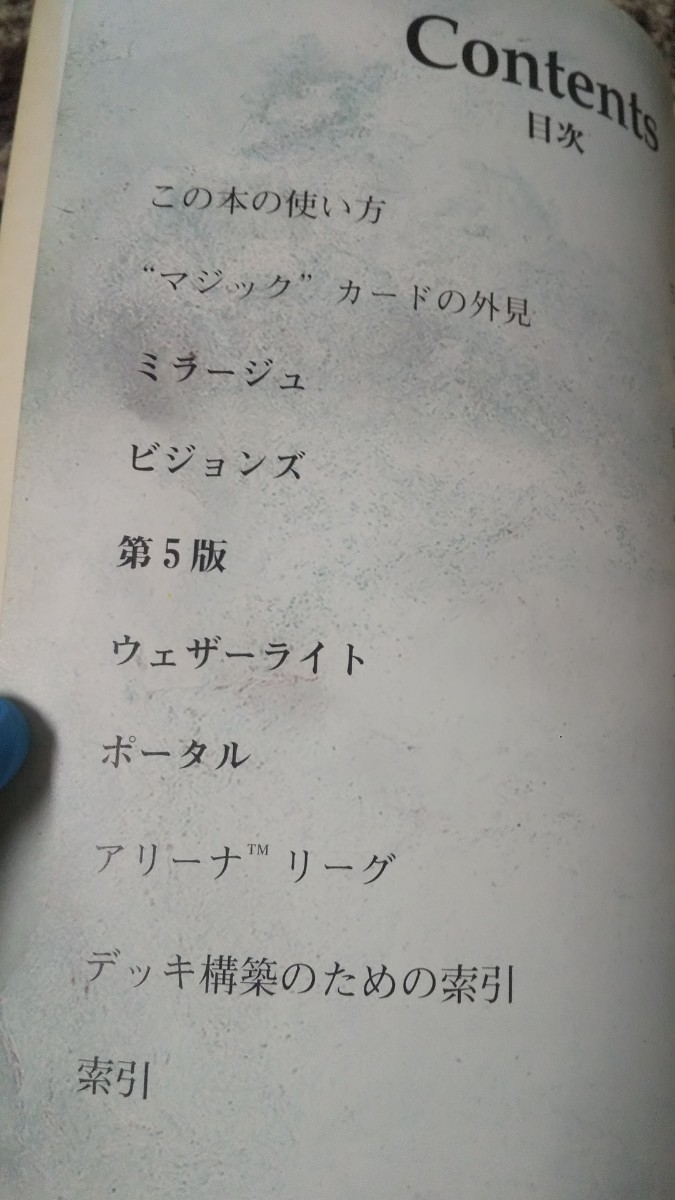 Contents
目次
この本の使い方
“マジック” カードの外見
ミラージュ
ビジョンズ
第5版
ウェザーライト
ポータル
アリーナ™ リーグ
デッキ構築のための索引
索引